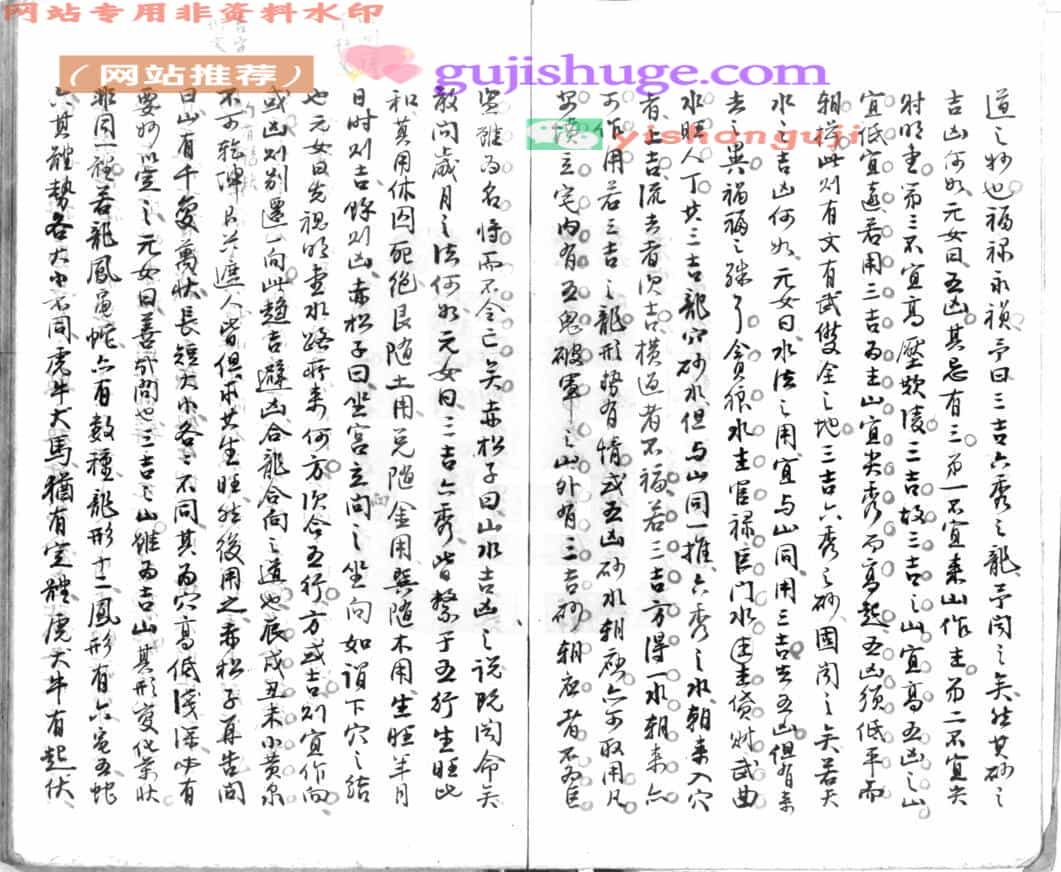 网站专用非资料水印
（网站推荐）
gujishuge.com
yishanguji
道之妙也福禄永禎予曰三吉六秀之龍予闻之矣然其砂之
吉凶何如元女曰五凶其忌有三第一不宜来山作主第二不宜尖
射明堂第三不宜高壓欺凌三吉故三吉之山宜高五凶之山
宜低宜遠若用三吉為主山宜尖秀而高起五凶須低平而
朝拱此則有文有武雙全之地三吉六秀之砂固闻之矣若夫
水之吉凶何如元女曰水法之用宜与山同用三吉去五凶但有来
去之異禍福之殊了貪狼水主官禄巨門水主貲财武曲
水旺人丁共三吉龍穴砂水但与山同一推六秀之水朝来入穴
者上吉流去者次吉横过者不福若三吉方得一水朝来亦
可作用若三吉之龍形势有情或五凶砂水朝應亦可取用凡
立宅内有五鬼破軍之山外有三吉砂朝应者不為
雖為名將而不令亡矣赤松子曰山水吉凶之説既闻命矣
敢问歲月之法何如元女曰三吉六秀皆繫于五行生旺此
和其用休囚死绝艮随土用兑随金用巽随木用生旺年月
日時則吉餘則凶赤松子曰坐宫立向之坐向如谓下穴之結
也元女曰先視明堂水路来何方次合五行方或吉則宜作向
或凶則别遷一向此趨吉避凶合龍合向之道也辰戌丑未小黄泉
不可乾坤艮巽遮人皆俱求其生旺然後用之赤松子再告问
曰山有千變萬状長短大小各之不同其為穴高低淺深必有
要妙以定之元女曰善哉问也三吉之山雖為吉山其形变化万状
非同一體若龍鳳龜蛇亦有数種龍形十二鳳形有六龜五蛇
六其體勢各大小不同虎牛犬馬猶有定體虎大牛有起伏